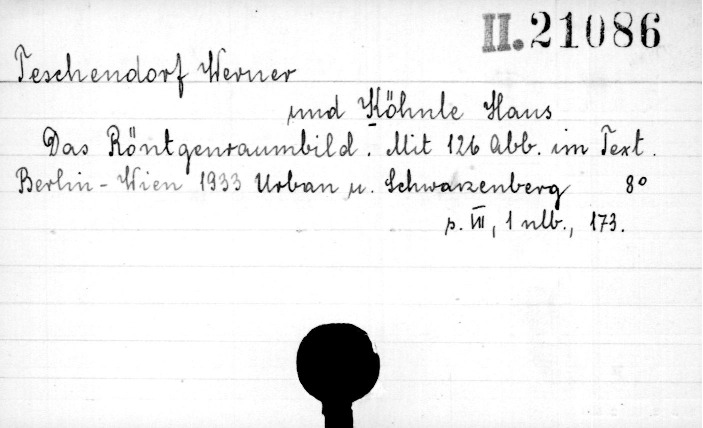 II. 21086
Teschendorf Werner
und Köhnle Hans
Das Röntgenraumbild. Mit 126 Abb. im Text.
Berlin-Wien 1933 Urban u. Schwarzenberg 8°
p. VII, 1 nlb., 173.